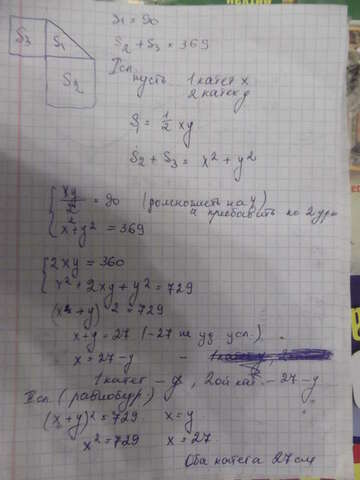 S₃ S₁
S₂
S₁ = 90
S₂ + S₃ = 369
I сп.
пусть 1 катет x
2 катет y
S₁ = 1/2 xy
S₂ + S₃ = x² + y²
{ xy/2 = 90 (домножить на 4
и прибавить ко 2 ур)
x² + y² = 369
{ 2xy = 360
x² + 2xy + y² = 729
(x + y)² = 729
x + y = 27 (-27 не уд усл.)
x = 27 - y
1 катет - y, 2ой кат. - 27 - y
II сп. (равнобедр)
(x + y)² = 729 x = y
x² = 729 x = 27
Оба катета 27 см